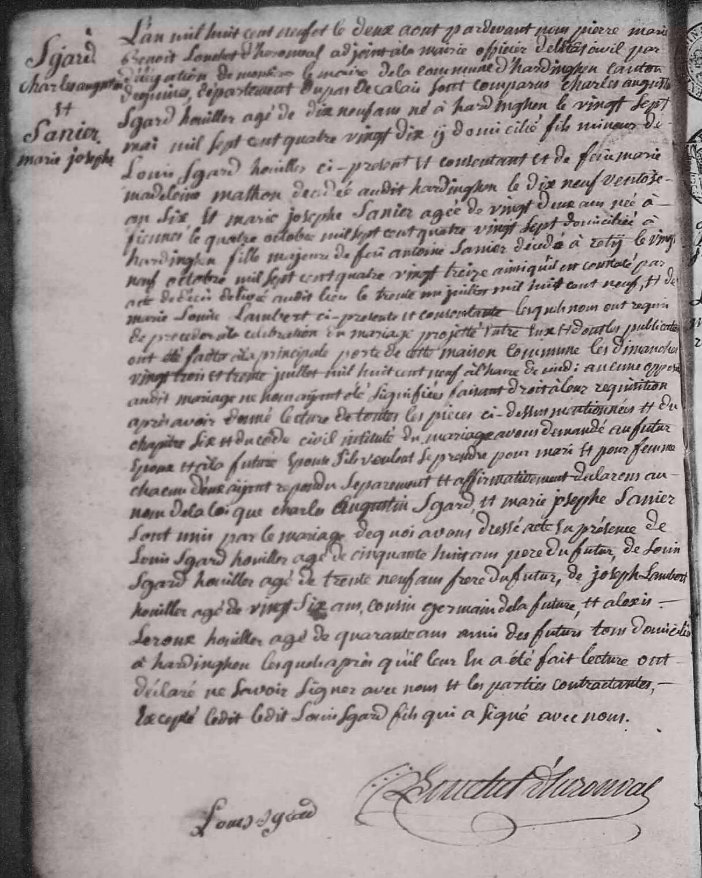 Sgard
charles augustin
et
Sanier
marie josephe
L'an mil huit cent neuf et le deux aout pardevant nous pierre marie
Benoit Louchet d'heronval adjoint a la mairie officier de l'etat civil par
délégation de monsieur le maire de la commune d'hardinghen canton
de guines, département du pas de calais sont comparus charles augustin
Sgard houiller agé de dix neuf ans né à hardinghen le vingt sept
mai mil sept cent quatre vingt dix y domicilié fils mineur de
Louis Sgard houiller ci-present et consentant et de feüe marie
madeleine mathon decédée audit hardinghen le dix neuf ventose
an Six et marie josephe Sanier agée de vingt deux ans née à
fiennes le quatre octobre mil sept cent quatre vingt sept domiciliée à
hardinghen fille majeure de feü antoine Sanier décédé à rety le vingt
neuf octobre mil sept cent quatre vingt treize ainsi qu'il est constaté par
acte de décès délivré audit lieu le trente un juillet mil huit cent neuf, et de
marie Louise Lambert ci-presente et consentante lesquels nous ont requis
de proceder à la célébration du mariage projetté entre Eux et dont les publications
ont été faites à la principale porte de cette maison commune les dimanches
vingt trois et trente juillet mil huit cent neuf à l'heure de midi; aucune opposition
audit mariage ne nous ayant été signifiée faisant droit à leur requisition
après avoir donné lecture de toutes les pieces ci-dessus mentionnées et du
chapitre Six du code civil intitulé du mariage avons demandé au futur
Epoux et à la future Epouse S'ils veulent se prendre pour mari et pour femme
chacun d'eux ayant repondu Separement et affirmativement declarons au
nom de la loi que charles Augustin Sgard, et marie josephe Sanier
Sont unis par le mariage de quoi avons dressé acte En présence de
Louis Sgard houiller agé de cinquante huit ans pere du futur, de Louis
Sgard houiller agé de trente neuf ans frere du futur, de joseph Lambert
houiller agé de vingt Six ans, cousin germain de la future, et alexis
Leroux houiller agé de quarante ans amis des futurs tous domiciliés
à hardinghen lesquels après qu'il leur En a été fait lecture ont
déclaré ne Savoir Signer avec nous et les parties contractantes,
Excepté ledit ledit Louis Sgard fils qui a signé avec nous.
Louis sgard
Louchet d'heronval